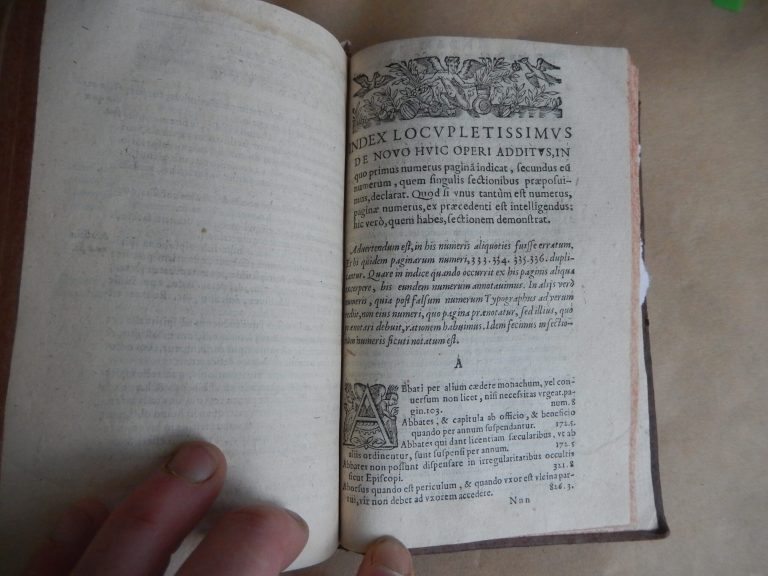 INDEX LOCVPLETISSIMVS
DE NOVO HVIC OPERI ADDITVS, IN
quo primus numerus paginā indicat, secundus eū
numerum, quem singulis sectionibus præposui-
mus, declarat. Quod si vnus tantùm est numerus,
paginæ numerus, ex præcedenti est intelligendus:
hic verò, quem habes, sectionem demonstrat.
Aduertendum est, in his numeris aliquoties fuisse erratum.
Et hi quidem paginarum numeri, 333. 334. 335. 336. dupli-
cantur. Quare in indice quando occurrit ex his paginis aliqua
excerpere, his eundem numerum annotauimus. In alijs verò
numeris, quia post falsum numerum Typographus ad verum
redijt, non eius numeri, quo pagina prænotatur, sed illius, quo
prænotari debuit, rationem habuimus. Idem fecimus in sectio-
num numeris sicuti notatum est.
A
ABbati per alium cædere monachum, vel con-
uersum non licet, nisi necessitas vrgeat. pa-
gin. 103. num. 8
Abbates, & capitula ab officio, & beneficio
quando per annum suspendantur. 172. 5.
Abbates qui dant licentiam sæcularibus, vt ab
alijs ordinentur, sunt suspensi per annum. 172. 5
Abbates non possunt dispensare in irregularitatibus occultis
sicut Episcopi. 321. 8
Aborsus quando est periculum, & quando vxor est vicina par-
tui, vir non debet ad vxorem accedere. 826. 3.
Non